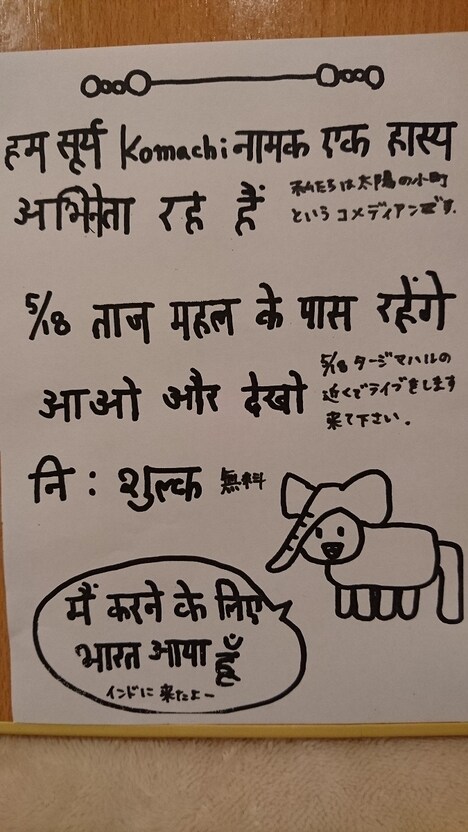 हम सूर्य Komachi नामक एक हास्य
अभिनेता रहे हैं
私たちは太陽の小町
というコメディアンです。
5/18 ताज महल के पास रहेंगे
आओ और देखो
5/18 タージマハルの
近くでライブをします
来て下さい。
नि: शुल्क 無料
मैं करने के लिए
भारत आया हूँ
インドに来たよー